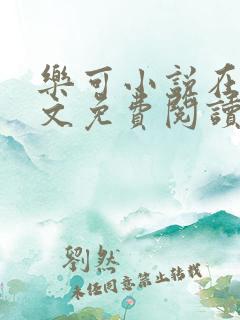 樂可小說在
文免費閱讀
劉然
未经同意禁止转载